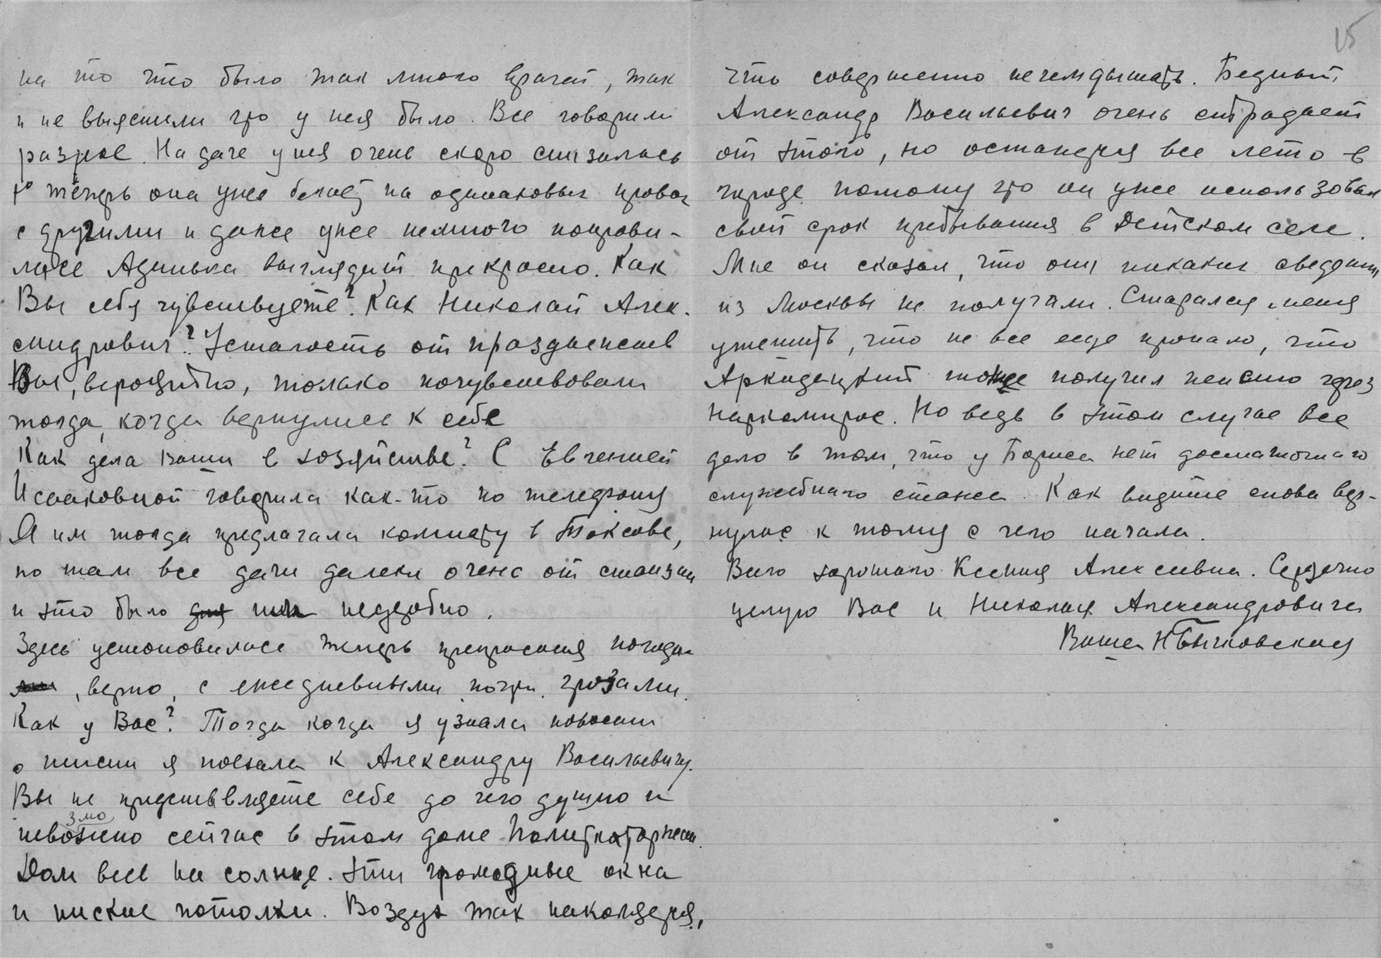 на то что было так много врачей, так
и не выяснили что у нея было. Все говорили
разное. На даче у нея очень скоро снизилась
t° теперь она уже бегает на одинаковых правах
с другими и даже уже немного поправи-
лась Адинька выглядит прекрасно. Как
Вы себя чувствуете? Как Николай Алек-
сандрович? Усталость от праздненств
Вы, вероятно, только почувствовали
тогда, когда вернулись к себе
Как дела Ваши в хозяйстве? С Евгенией
Исааковной говорила как-то по телефону
Я им тогда предлагала комнату в Токсове,
но там все дачи далеки очень от станции
и это было им неудобно.
Здесь установилась теперь прекрасная погода
, верно, с ежедневными почти грозами.
Как у Вас? Тогда когда я узнала новости
о пенсии я поехала к Александру Васильевичу.
Вы не представляете себе до чего душно и
невозможно сейчас в этом доме Политкаторжан.
Дом весь на солнце. Эти громадные окна
и низкие потолки. Воздух так накаляется,
15
что совершенно нечем дышать. Бедный
Александр Васильевич очень страдает
от этого, но останется все лето в
городе потому что он уже использовал
свой срок пребывания в Детском селе.
Мне он сказал, что они никаких сведений
из Москвы не получали. Старался меня
утешить, что не все еще пропало, что
тоже получил пенсию через
Наркомпрос. Но ведь в этом случае все
дело в том, что у Бориса нет достаточнаго
служебнаго стажа. Как видите снова вер-
нулась к тому с чего начала.
Всего хорошаго Ксения Алексеевна. Сердечно
целую Вас и Николая Александровича
Ваша Н Бычковская